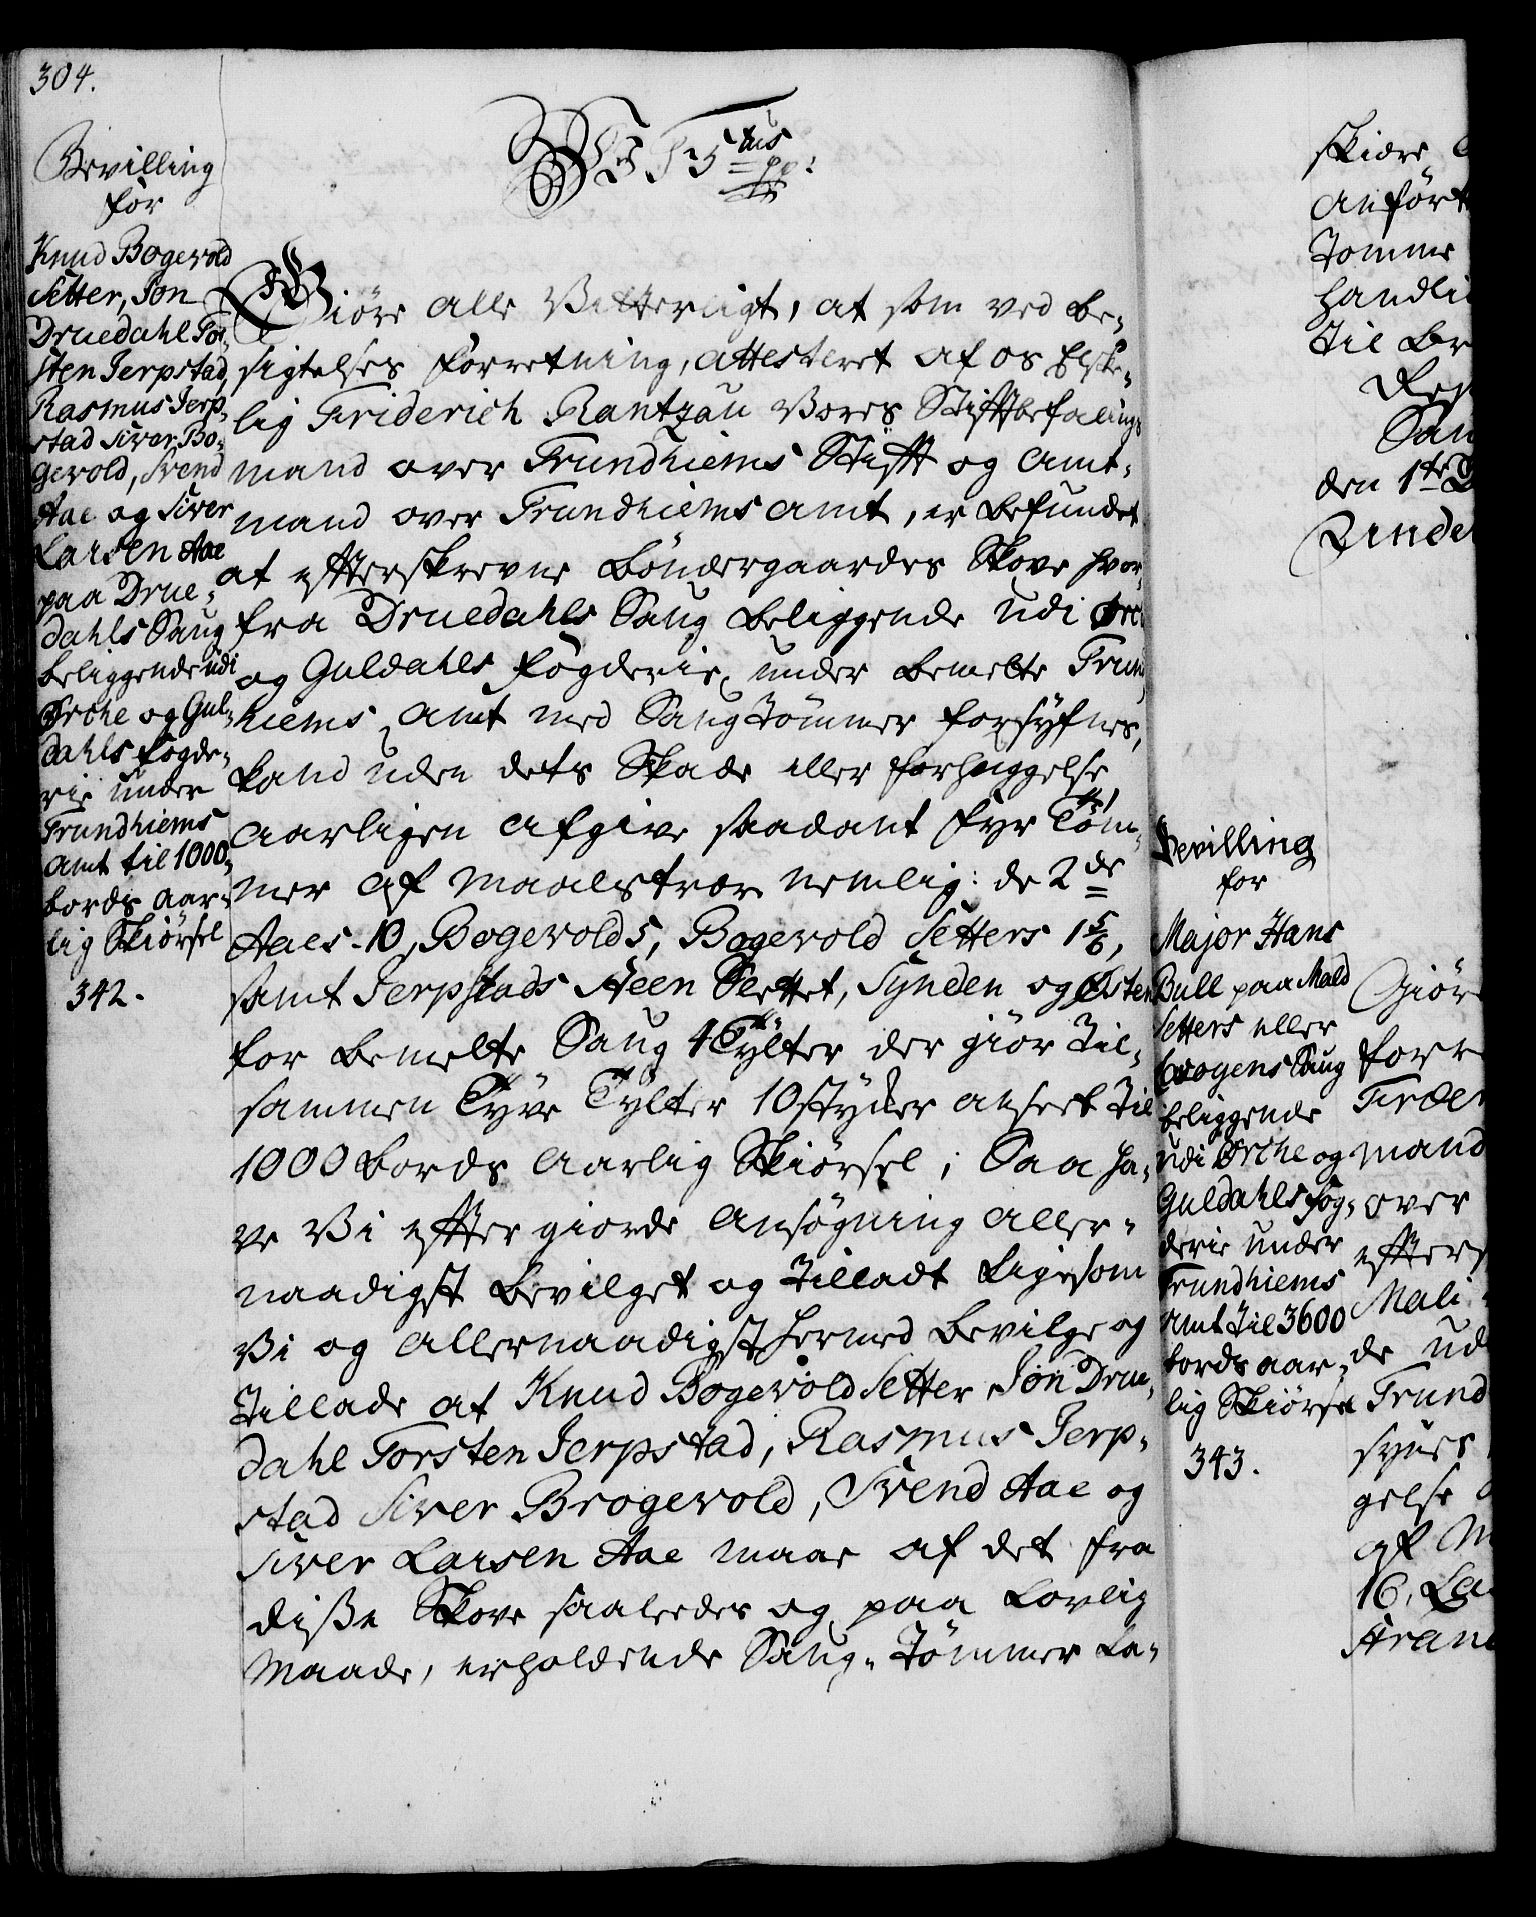 304.
Bevilling
for
Knud Bogevold
Setter, Jon
Druedahl Tor-
sten Jerpstad,
Rasmus Jerp-
stad Siver Bo-
gevold, Svend
Aae og Siver
Larsen Aae
paa Drue-
dahls Saug
beliggende udi
Ørche og Gul-
dahls fogde-
rie under
Trundhiems
Amt til 1000
bords aar-
lig Skiørsel
342.
W F 5tus pp:
Giöre alle Vitterligt, at som ved be-
sigtelses forretning, attesteret af os Elske-
lig Friderich Rantzau Vores Stifftbefalings
mand over Trundhiems Stifft og Amt-
mand over Trundhiems Amt, er befundet
at efterskrevne bøndergaardes Skove hvor-
fra Druedahls Saug beliggende udi Ørche
og Guldahls fogderie, under bemelte Trund
hiems Amt med Saugtömmer forsyfnes,
kand uden dets Skade eller forhuggelse
aarligen afgive saadant fyr Töm-
mer af Maalstræer nemlig: de 2de
Aaes 10, Bogevold 5, Bogevold Setters 1 5/6,
samt Jerpstads Steen Slettet, Synden og Østen
for bemelte Saug 4 Tylter der giör til-
sammen Tyve Tylter 10 stycker ansect til
1000 bords aarlig Skiörsel; Saa ha-
ve Vi efter giorde ansögning aller-
naadigst bevilget og tilladt ligesom
Vi og allernaadigst hermed bevilge og
tillade at Knud Bogevold Setter, Jon Drue-
dahl Torsten Jerpstad, Rasmus Jerp-
stad Siver Brogevold, Svend Aae og
Siver Larsen Aae maae af det fra
diße Skove saaledes og paa lovlig
Maade, erholdende Saug-Tömmer la-
skiære
anført
Tomme
handli
til Br
den 1te
Bevilling
for
Major Hans
Bull paa Mald
Setters eller
beliggende
udi Ørche og
Guldahls fog-
derie under
Trundhiems
Amt til 3600
bords aar-
lig Skiørsel
343.
Giör
forr
mand
over
efters
Mali
de ud
Trund
synes
gelse
af M
16, La